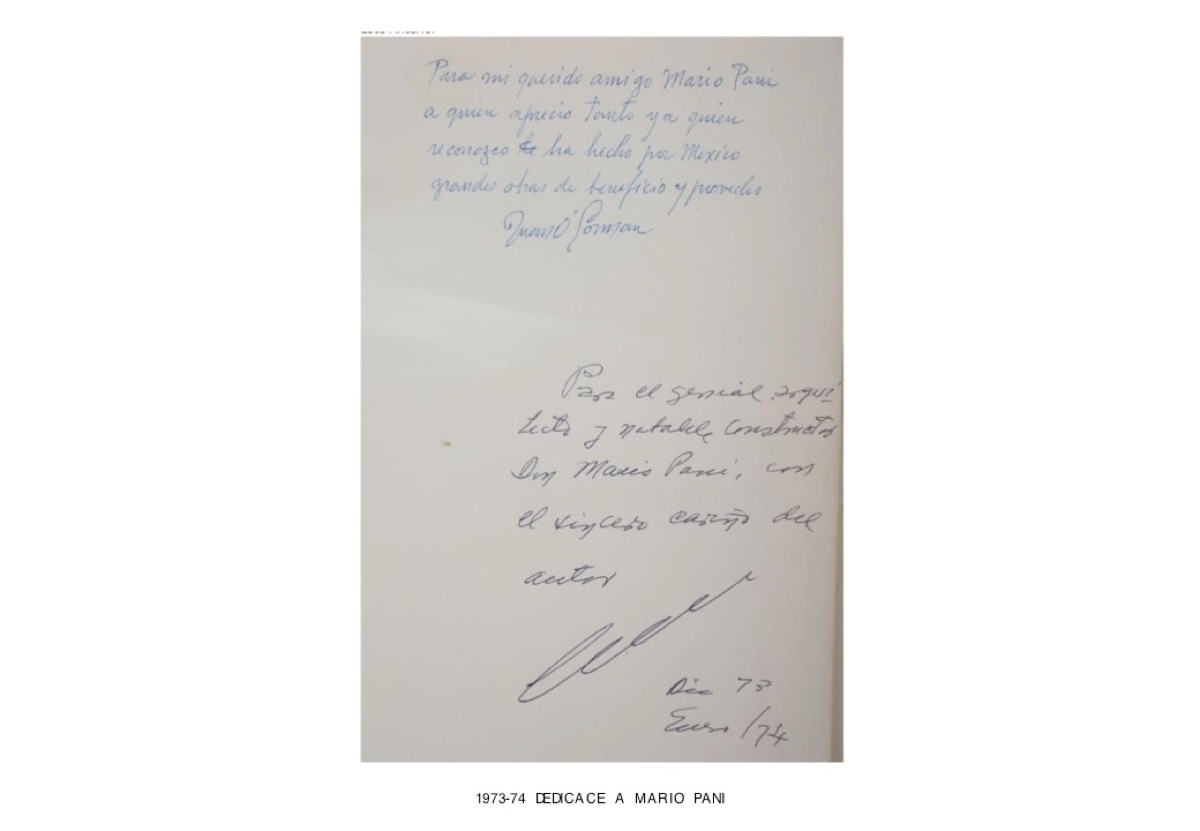 Para mi querido amigo Mario Pani
a quien aprecio tanto y a quien
reconozco ha hecho por Mexico
grandes obras de beneficio y provecho
Juan O'Gorman
Para el genial arqui
tecto y notable constructor
Don Mario Pani, con
el sincero cariño del
autor
Dic 73
Enero/74
1973-74 DEDICACE A MARIO PANI